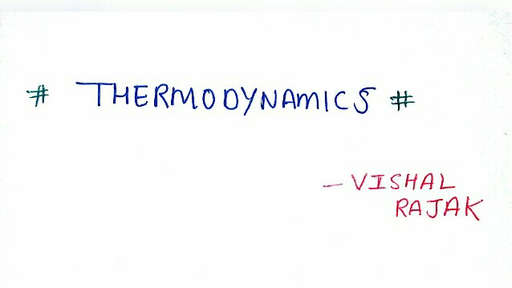 # THERMODYNAMICS #
- VISHAL
RAJAK